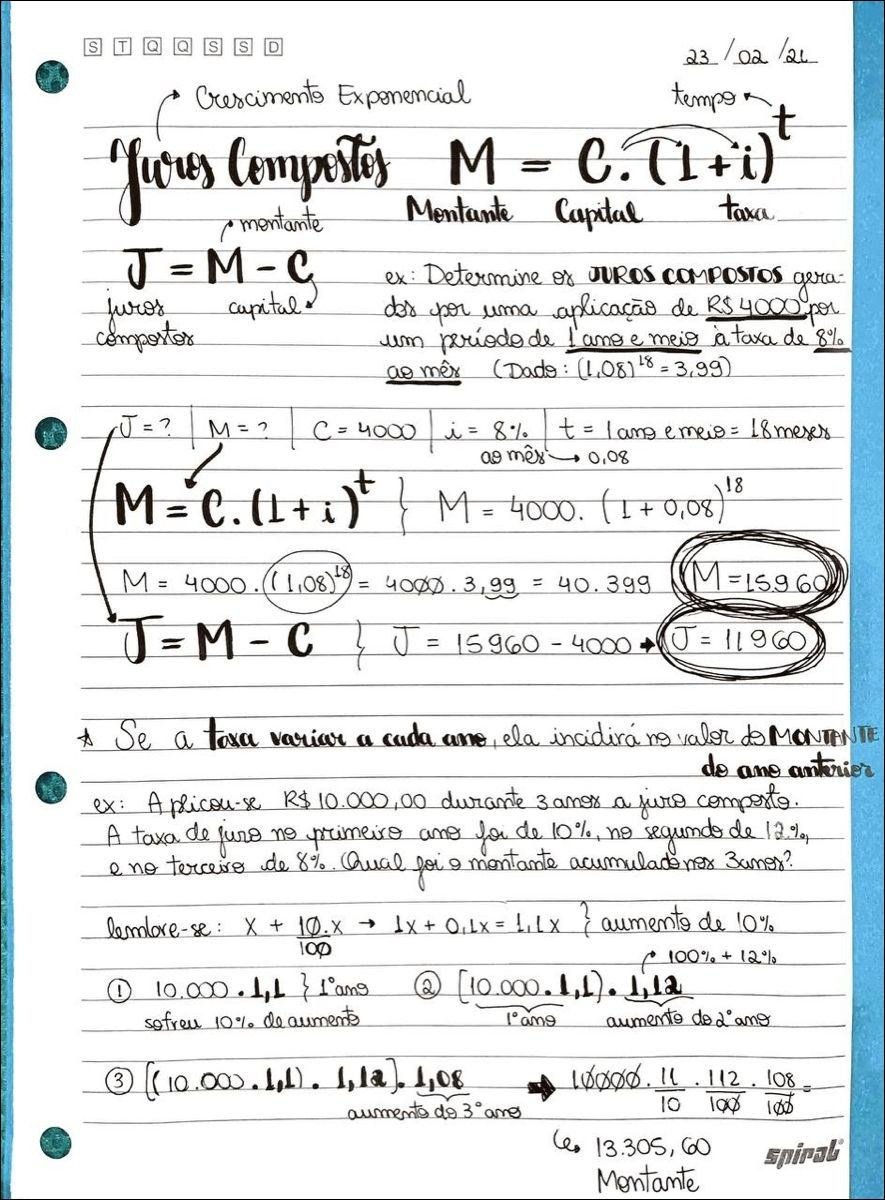 S T Q Q S S D
23/02/21
Crescimento Exponencial
tempo
Juros Compostos M = C.(1+i)^t
Montante Capital taxa
montante
J = M - C
juros compostos
capital
ex: Determine os JUROS COMPOSTOS gera-
dos por uma aplicação de R$ 4000 por
um período de 1 ano e meio à taxa de 8%
ao mês (Dado: (1,08)^18 = 3,99)
J = ? | M = ? | C = 4000 | i = 8% | t = 1 ano e meio = 18 meses
ao mês → 0,08
M = C.(1+i)^t } M = 4000.(1+0,08)^18
M = 4000.(1,08)^18 = 4000.3,99 = 40.399 M = 15960
J = M - C } J = 15960 - 4000 → J = 11960
* Se a taxa variar a cada ano, ela incidirá no valor do MONTANTE
do ano anterior
ex: Aplicou-se R$ 10.000,00 durante 3 anos a juro composto.
A taxa de juro no primeiro ano foi de 10%, no segundo de 12%,
e no terceiro de 8%. Qual foi o montante acumulado nos 3 anos?
lembre-se: x + 10/100.x → 1x + 0,1x = 1,1x } aumento de 10%
100% + 12%
① 10.000.1,1 } 1º ano ② [10.000.1,1).1,12
sofreu 10% de aumento 1º ano aumento do 2º ano
③ [(10.000.1,1).1,12].1,08 → 10000.11/10.112/100.108/100 =
aumento do 3º ano
↳ 13.305,60
Montante
spiral